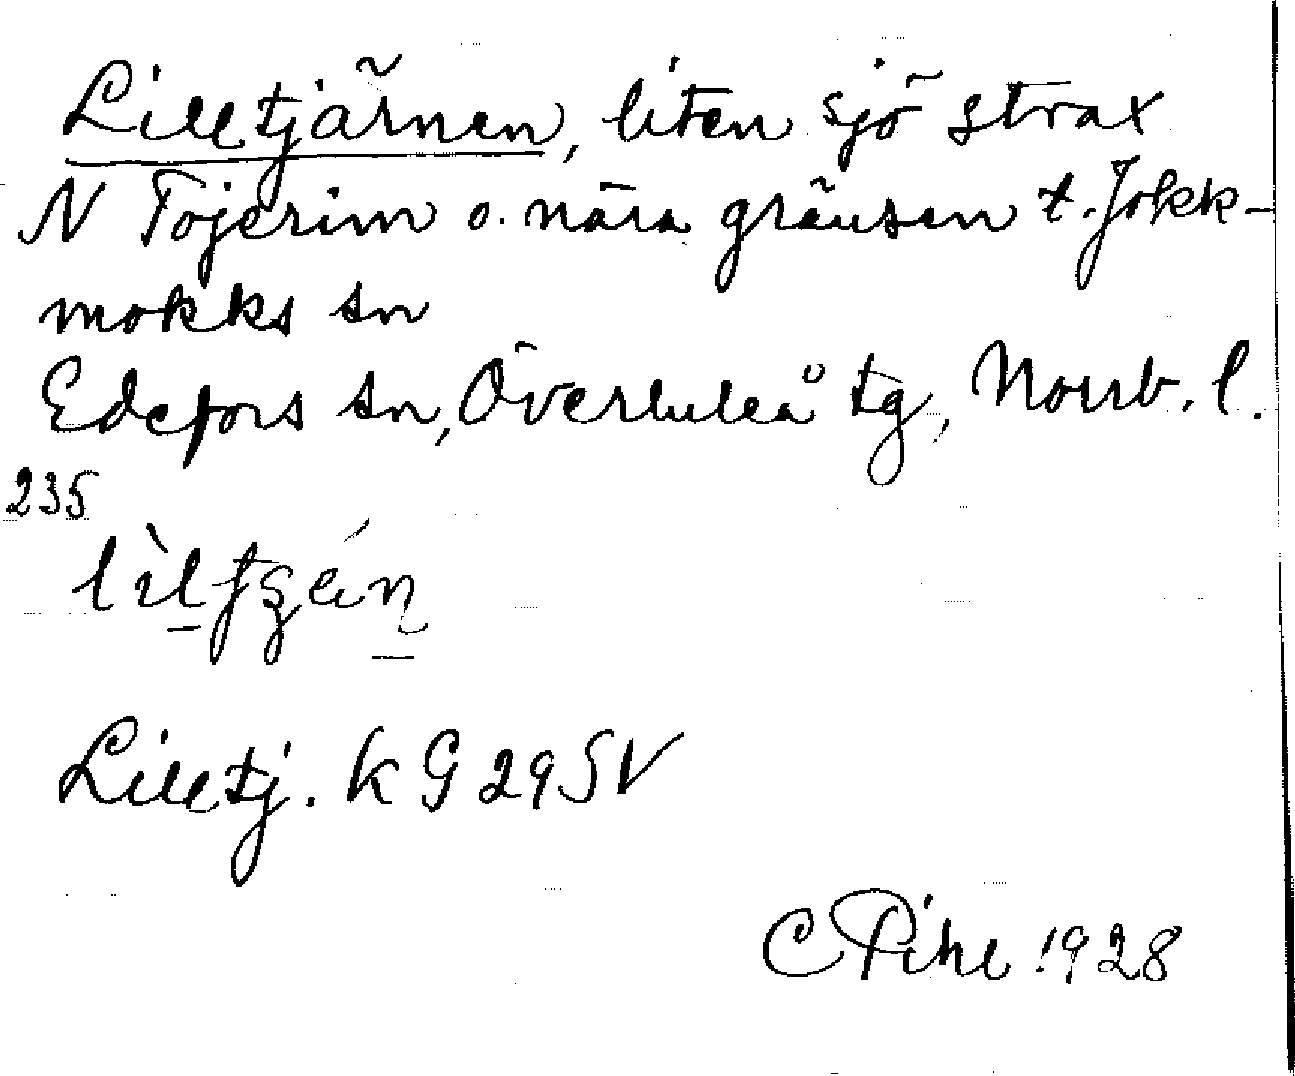 Lilltjärnen, liten sjö strax
N Tojerim o. nära gränsen t. Jokk-
mokks sn
Edefors sn, Överluleå tg, Norrb. l.
235
Lilltj. k G 29 SV
C Pihl 1928